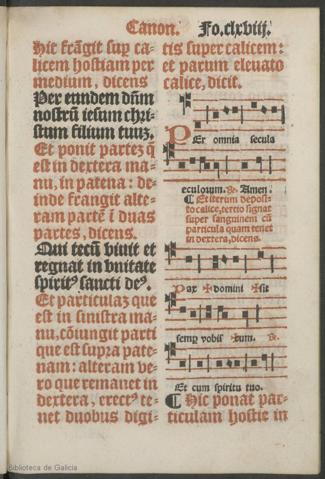 Canon. Fo.clxviij.
Hic frãgit suꝑ ca-
licem hostiam per
medium, dicens
Per eundem dñm
nostrũ iesum chri-
stum filium tuuꝫ.
Et ponit parteꝫ q̃
est in dextera ma-
nu, in patena: de-
inde frangit alte-
ram partẽ ĩ duas
partes, dicens.
Qui tecũ viuit et
regnat in vnitate
spiritꝰ sancti deꝰ.
Et particulaꝫ que
est in sinistra ma-
nu, cõiungit parti
que est supra pate-
nam: alteram ve-
ro que remanet in
dextera, erectꝰ te-
net duobus digi-
tis super calicem:
et parum eleuato
calice, dicit.
PEr omnia secula
seculorum. ℟. Amen.
¶ Et iterum deposi-
to calice, tertio signat
super sanguinem cũ
particula quam tenet
in dextera, dicens.
Pax ✠domini ✠sit
semꝑ vobis ✠cum. ℟.
Et cum spiritu tuo.
¶ Hic ponat par-
ticulam hostie in
Biblioteca de Galicia